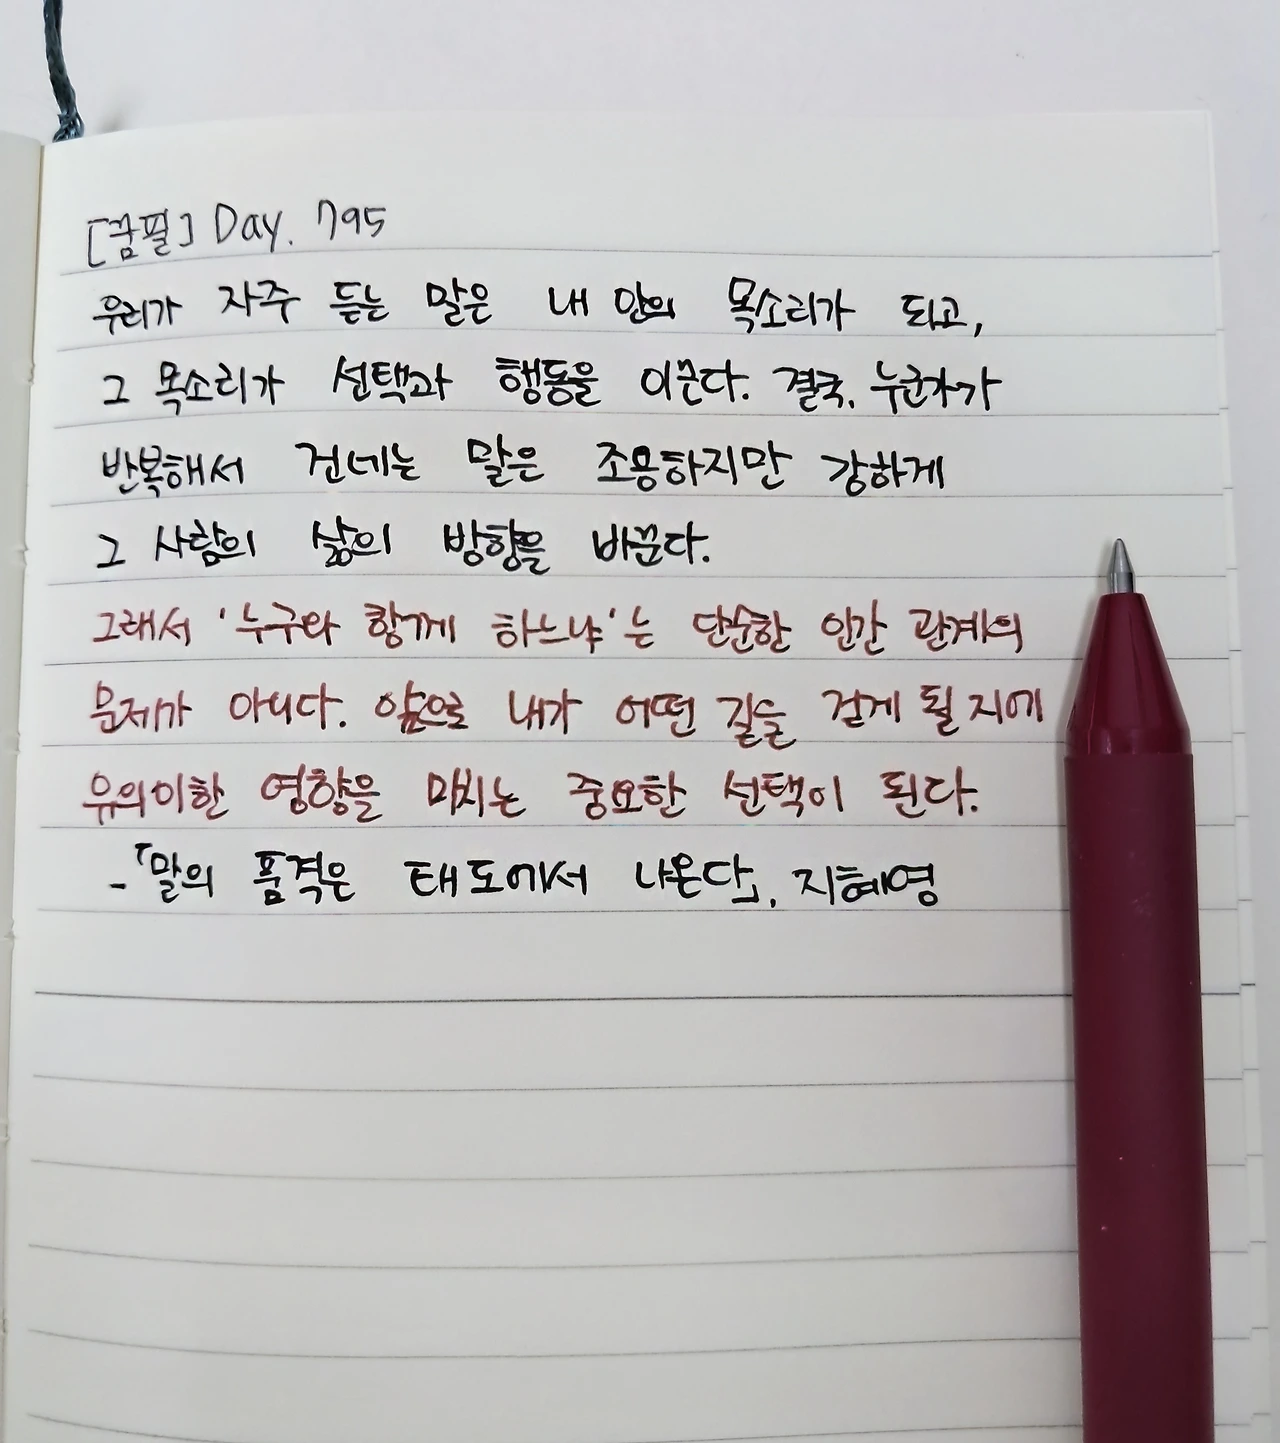 [꿈필] Day. 795
우리가 자주 듣는 말은 내 안의 목소리가 되고,
그 목소리가 선택과 행동을 이끈다. 결국, 누군가가
반복해서 건네는 말은 조용하지만 강하게
그 사람의 삶의 방향을 바꾼다.
그래서 '누구와 함께 하느냐'는 단순한 인간 관계의
문제가 아니다. 앞으로 내가 어떤 길을 걷게 될 지에
유의미한 영향을 미치는 중요한 선택이 된다.
-「말의 품격은 태도에서 나온다」, 지혜영